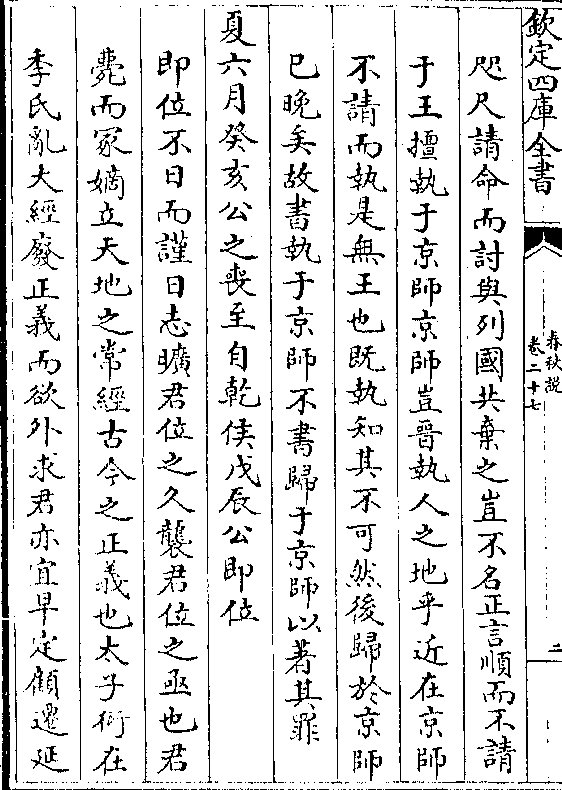 欽定四庫全書
春秋說
卷二十七
二
咫尺請命而討與列國共棄之豈不名正言順而不請
于王擅執于京師京師豈晉執人之地乎近在京師
不請而執是無王也既執知其不可然後歸於京師
已晚矣故書執于京師不書歸于京師以著其罪
夏六月癸亥公之喪至自乾侯戊辰公即位
即位不日而謹日志曠君位之久襲君位之亟也君
薨而冢嫡立天地之常經古今之正義也太子衍在
季氏亂大經廢正義而欲外求君亦宜早定顧遷延